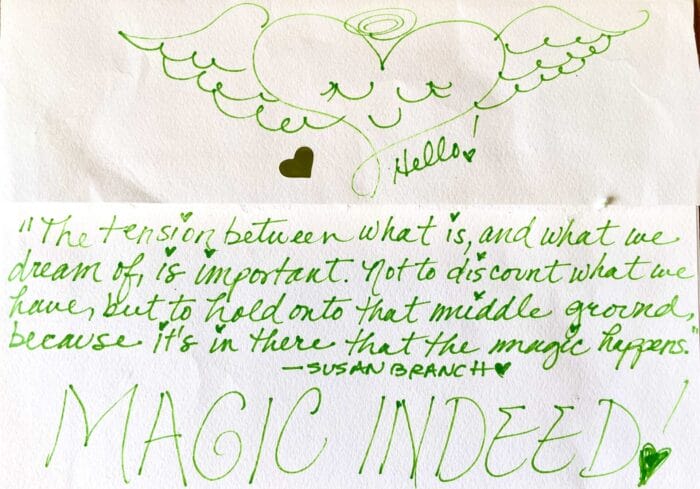 Hello!
"The tension between what is, and what we
dream of, is important. Not to discount what we
have, but to hold onto that middle ground,
because it's in there that the magic happens."
—SUSAN BRANCH♥
MAGIC INDEED!